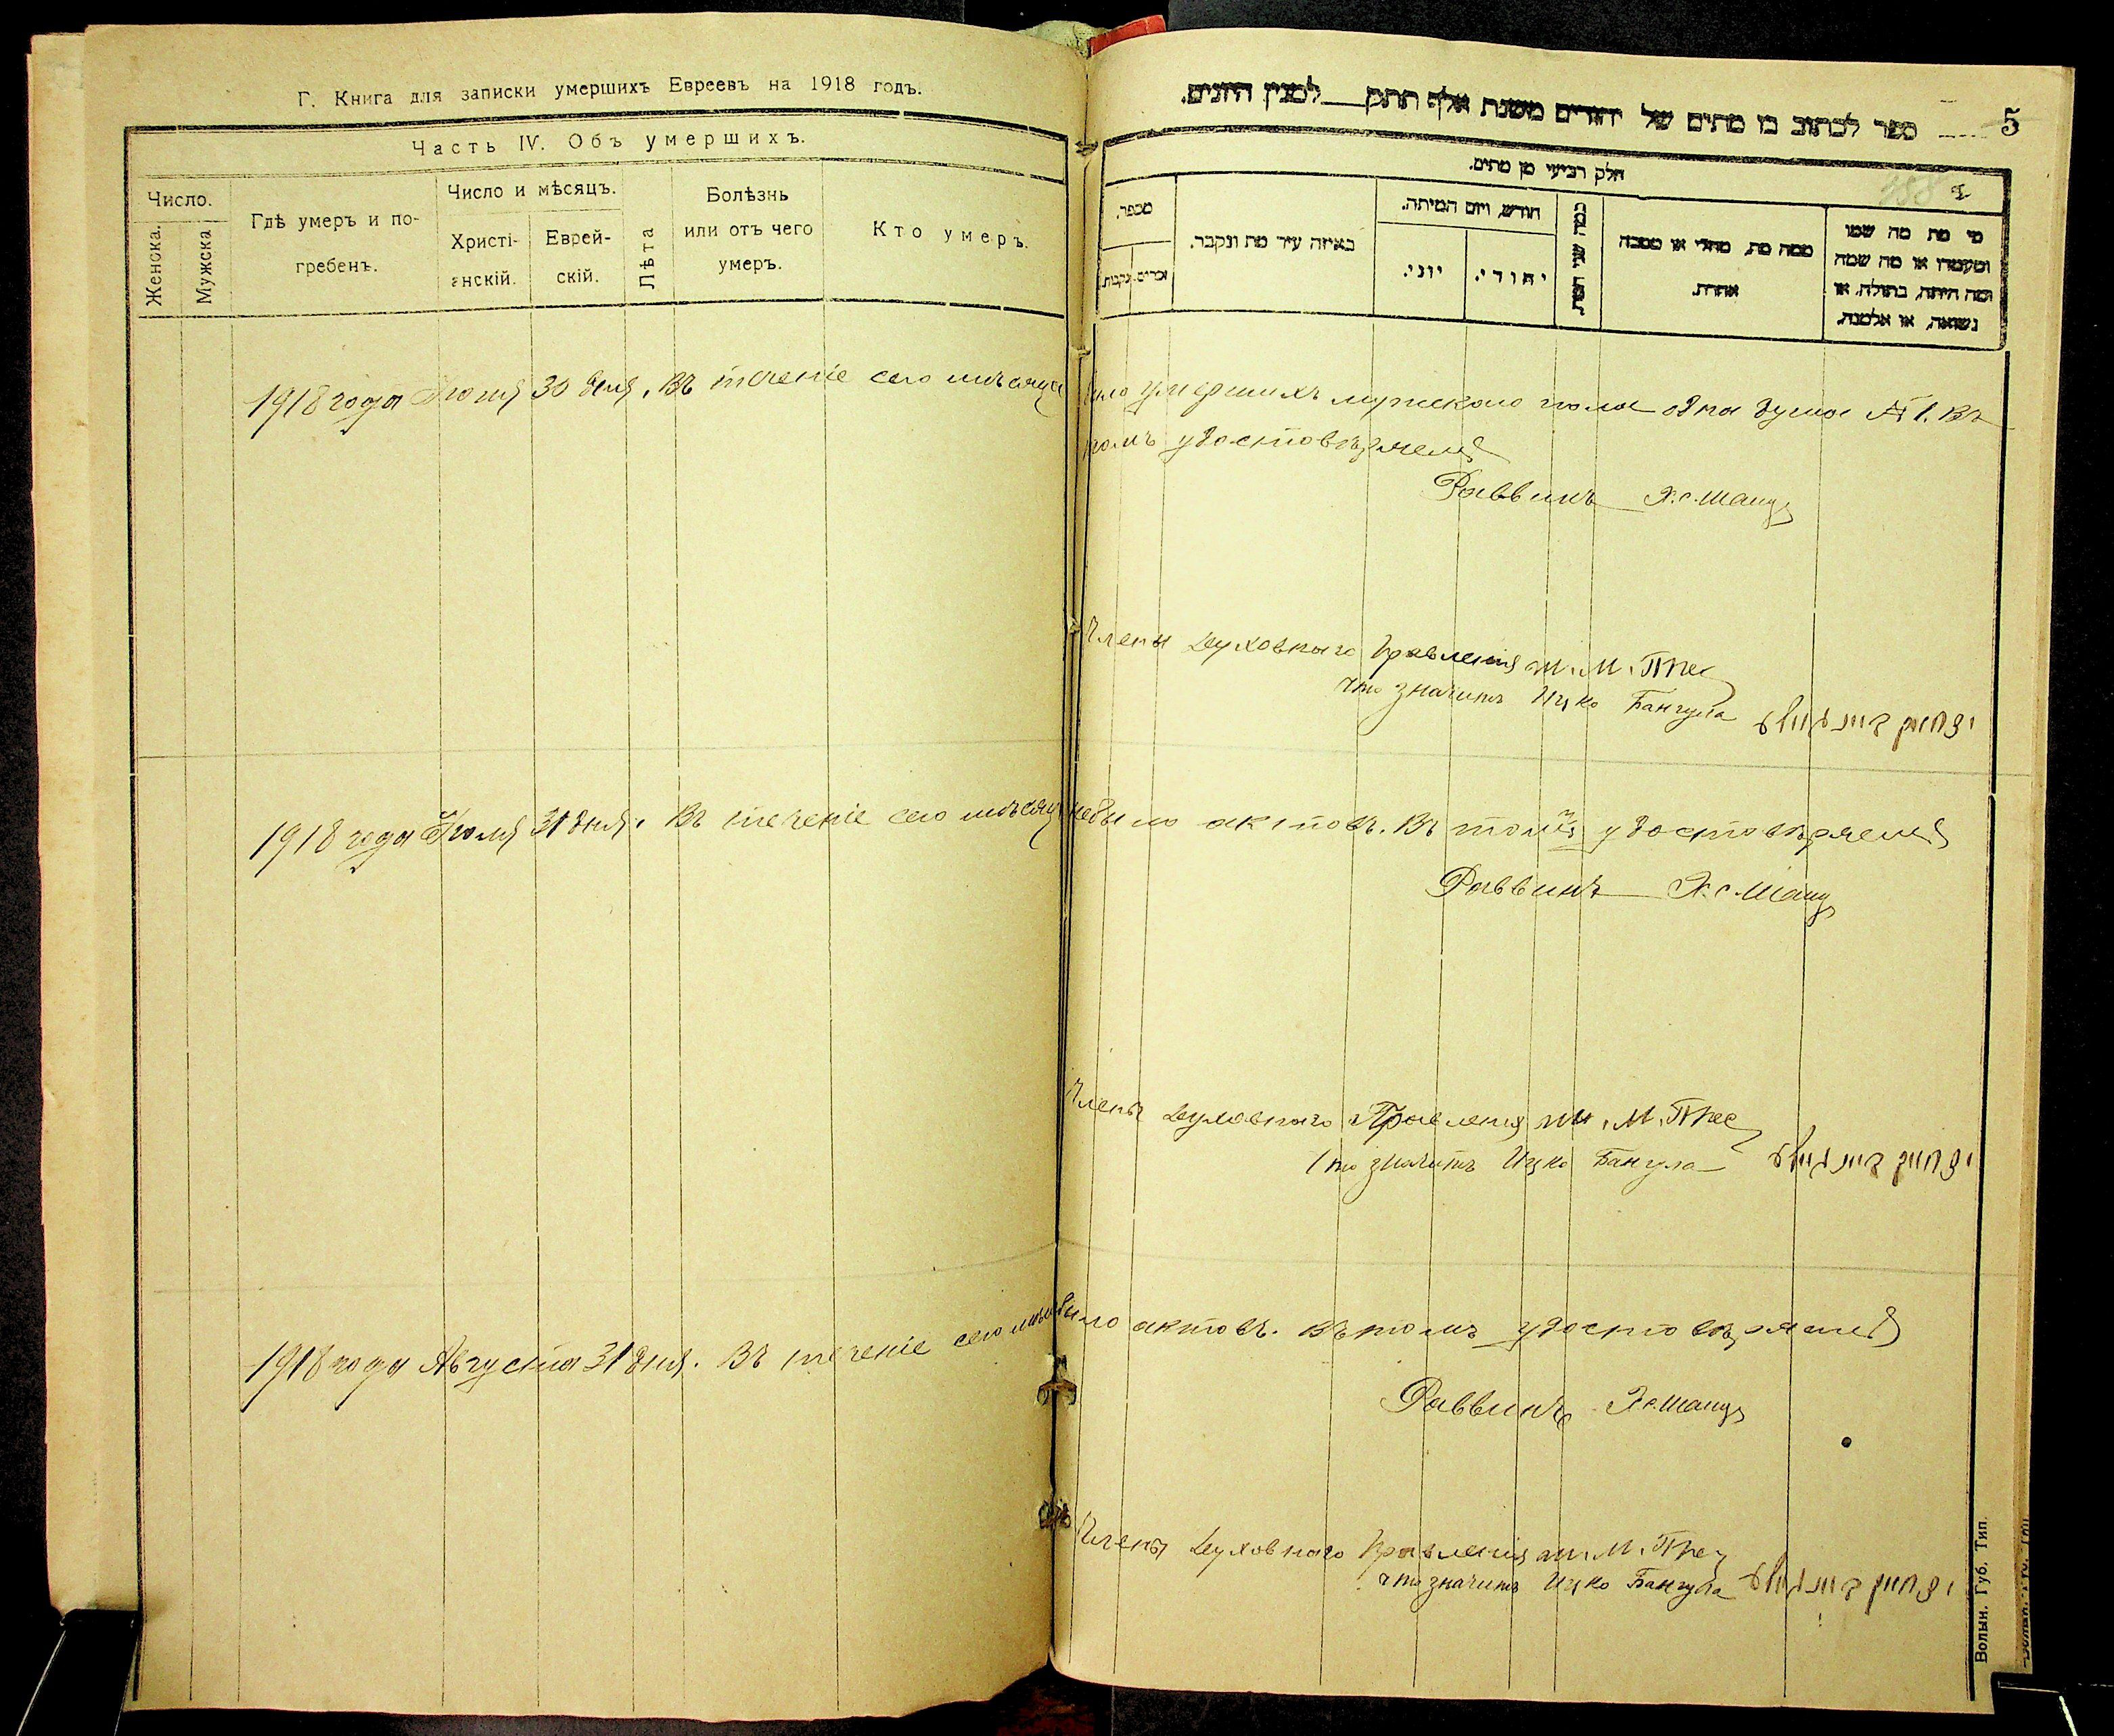 Г. Книга для записки умершихъ Евреевъ на 1918 годъ.
Часть IV. Объ умершихъ.
Число.
Женска.
Мужска
Гдѣ умеръ и по-
гребенъ.
Число и мѣсяцъ.
Христі-
анскій.
Еврей-
скій.
Лѣта
Болѣзнь
или отъ чего
умеръ.
Кто умеръ.
ספר לכתוב בו מתים של יהודים משנת אלף תתק למנין היונים.
5
חלק רביעי מן מתים.
מספר.
זכרים.
נקבות.
באיזה עיר מת ונקבר.
חודש, ויום המיתה.
יוני.
יהודי.
כמה שני המת.
ממה מת, מחלי או מסבה
אחרת.
מי מת מה שמו
ומעמדו או מה שמה
ומה היתה, בתולה, או
נשואה, או אלמנה.
1918 года Іюня 30 дня. Въ теченіе сего мѣсяца было умершихъ мужского пола одна душа № 1. Въ
томъ удостовѣряемъ
Раввинъ
Члены Духовнаго Правленія М.
что значитъ Ицко Бангула
1918 года Іюля 31 дня. Въ теченіе сего мѣсяца небыло актовъ. Въ томъ удостовѣряемъ
Раввинъ
Члены Духовнаго Правленія М.
что значитъ Ицко Бангула
1918 года Августа 31 дня. Въ теченіе сего было актовъ. Въ томъ удостовѣряемъ
Раввинъ
Члены Духовнаго Правленія М.
что значитъ Ицко Бангула
Волын. Губ. Тип.